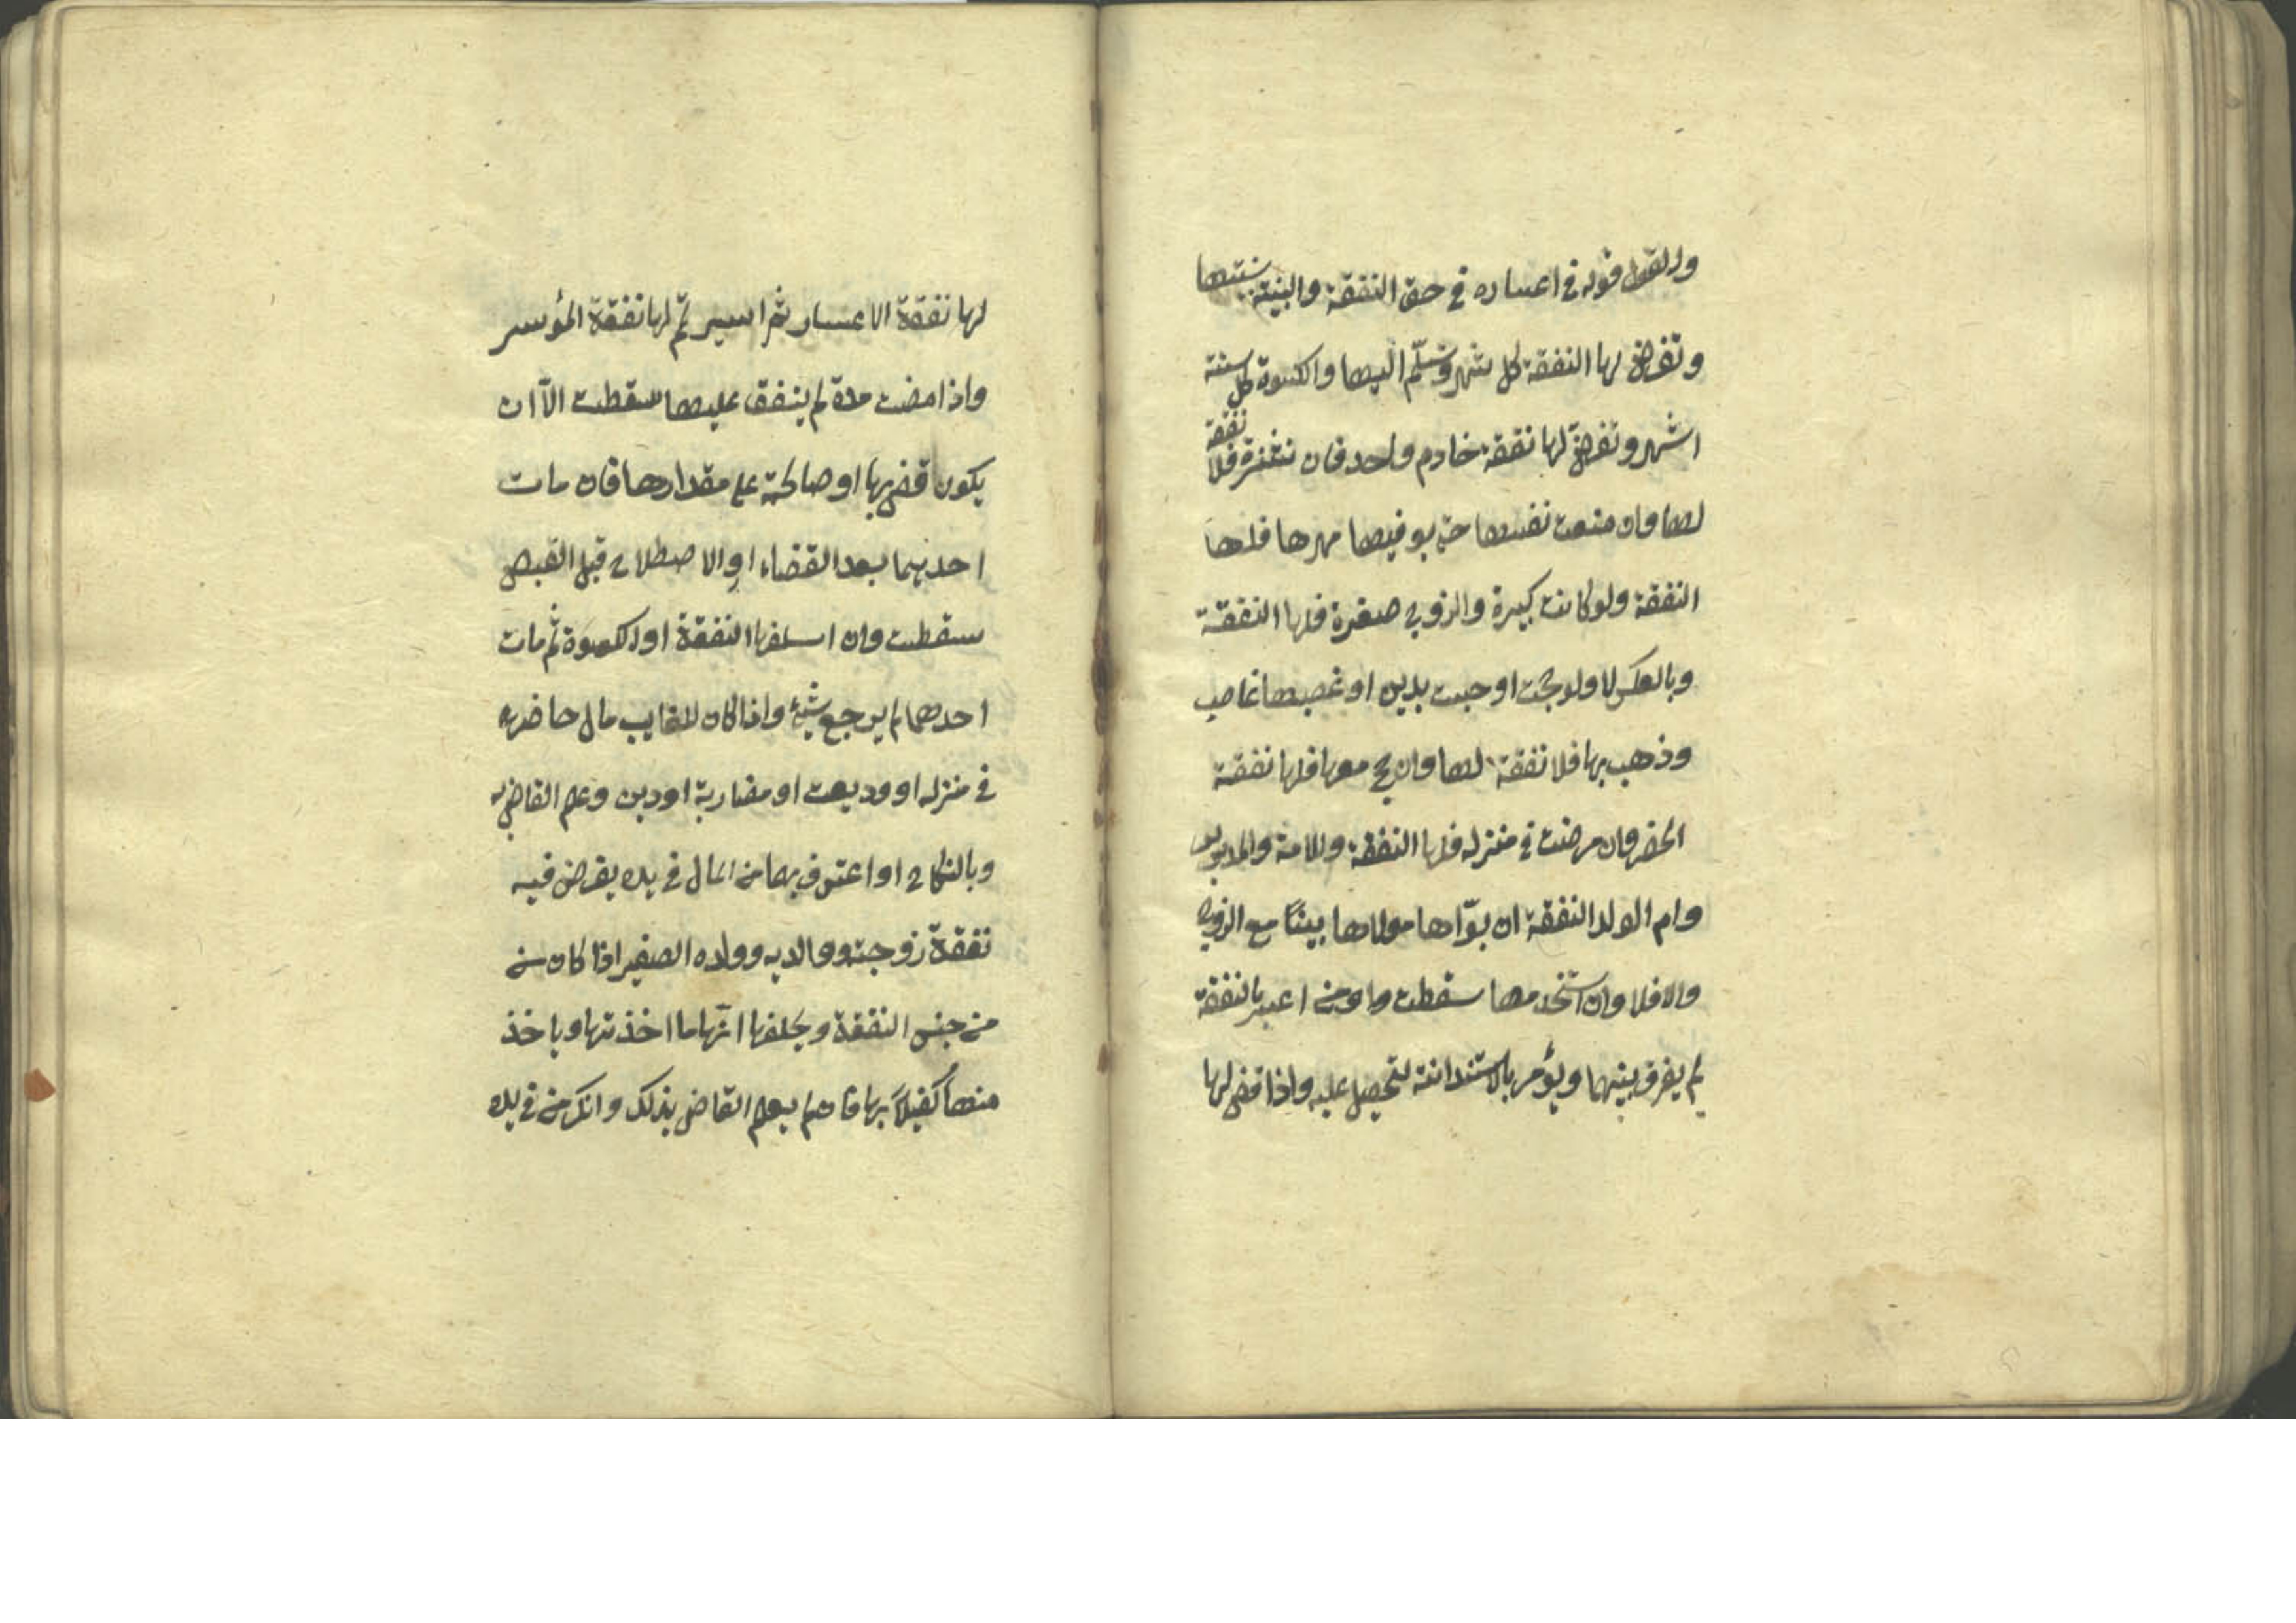 والقول قوله في اعساره في حق النفقة والبينة بينتها
وتفرض لها النفقة كل شهر وتسلّم اليها والكسوة كل ستة
اشهر وتفرض لها نفقة خادم واحد فان نشزت فلا نفقة
لها وان منعت نفسها حتى يوفيها مهرها فلها
النفقة ولو كانت كبيرة والزوج صغيرة فلها النفقة
وبالعكس لا ولو حجت او حبست بدين او غصبها غاصب
وذهب بها فلا نفقة لها وان حج معها فلها نفقة
الحضر وان مرضت في منزله فلها النفقة وللامة والمدبرة
وام الولد النفقة ان بوّاها مولاها بيتًا مع الزوج
والا فلا وان استخدمها سقطت ومن اعسر بالنفقة
لم يفرق بينهما ويؤمر بالاستدانة لتحيل عليه واذا قضى لها
لها نفقة الاعسار ثم اسير تمّ لها نفقة المؤسر
واذا مضت مدة لم ينفق عليها سقطت الاّ ان
يكون قضى بها او صالحته على مقدارها فان مات
احديهما بعد القضاء او الاصطلاح قبل القبض
سقطت وان اسلفها النفقة او الكسوة ثم مات
احدهما لم يرجع بشيء واذا كان للغايب مال حاضر
في منزله او وديعت او مضاربة او دين وعلم القاضي به
وبالنكاح او اعترف بها من المال في يده يفرض فيه
نفقة زوجته ووالديه وولده الصغير اذا كان من
من جنس النفقة ويحلفها انّها ما اخذتها وياخذ
منها كفيلاً بها فان لم يعلم القاضي بذلك وانكر من في يده